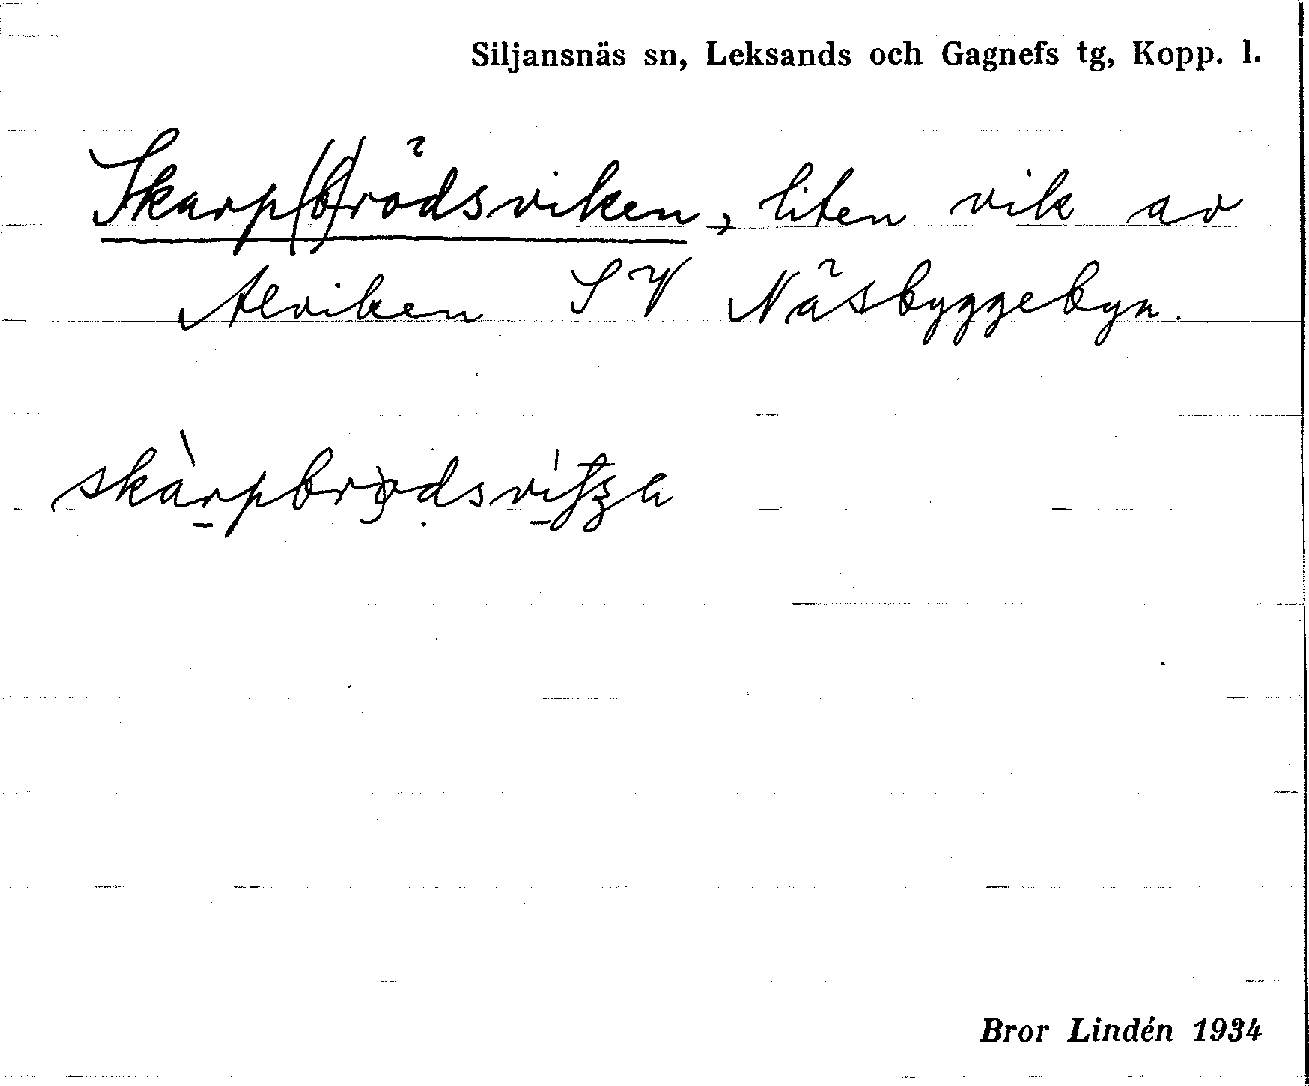 Siljansnäs sn, Leksands och Gagnefs tg, Kopp. l.
Skarp(b)rödsviken, liten vik av
Alviken SV Näsbyggebyn.
Bror Lindén 1934